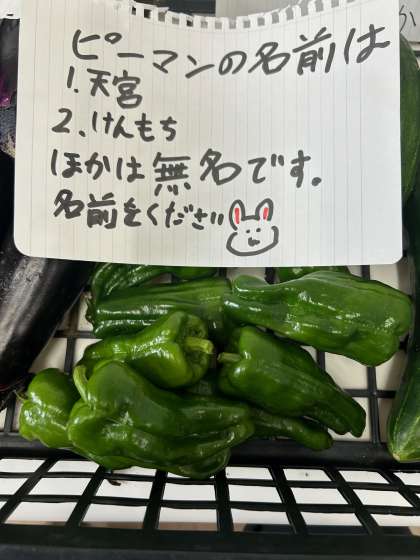 ピーマンの名前は
1. 天宮
2. けんもち
ほかは無名です。
名前をください